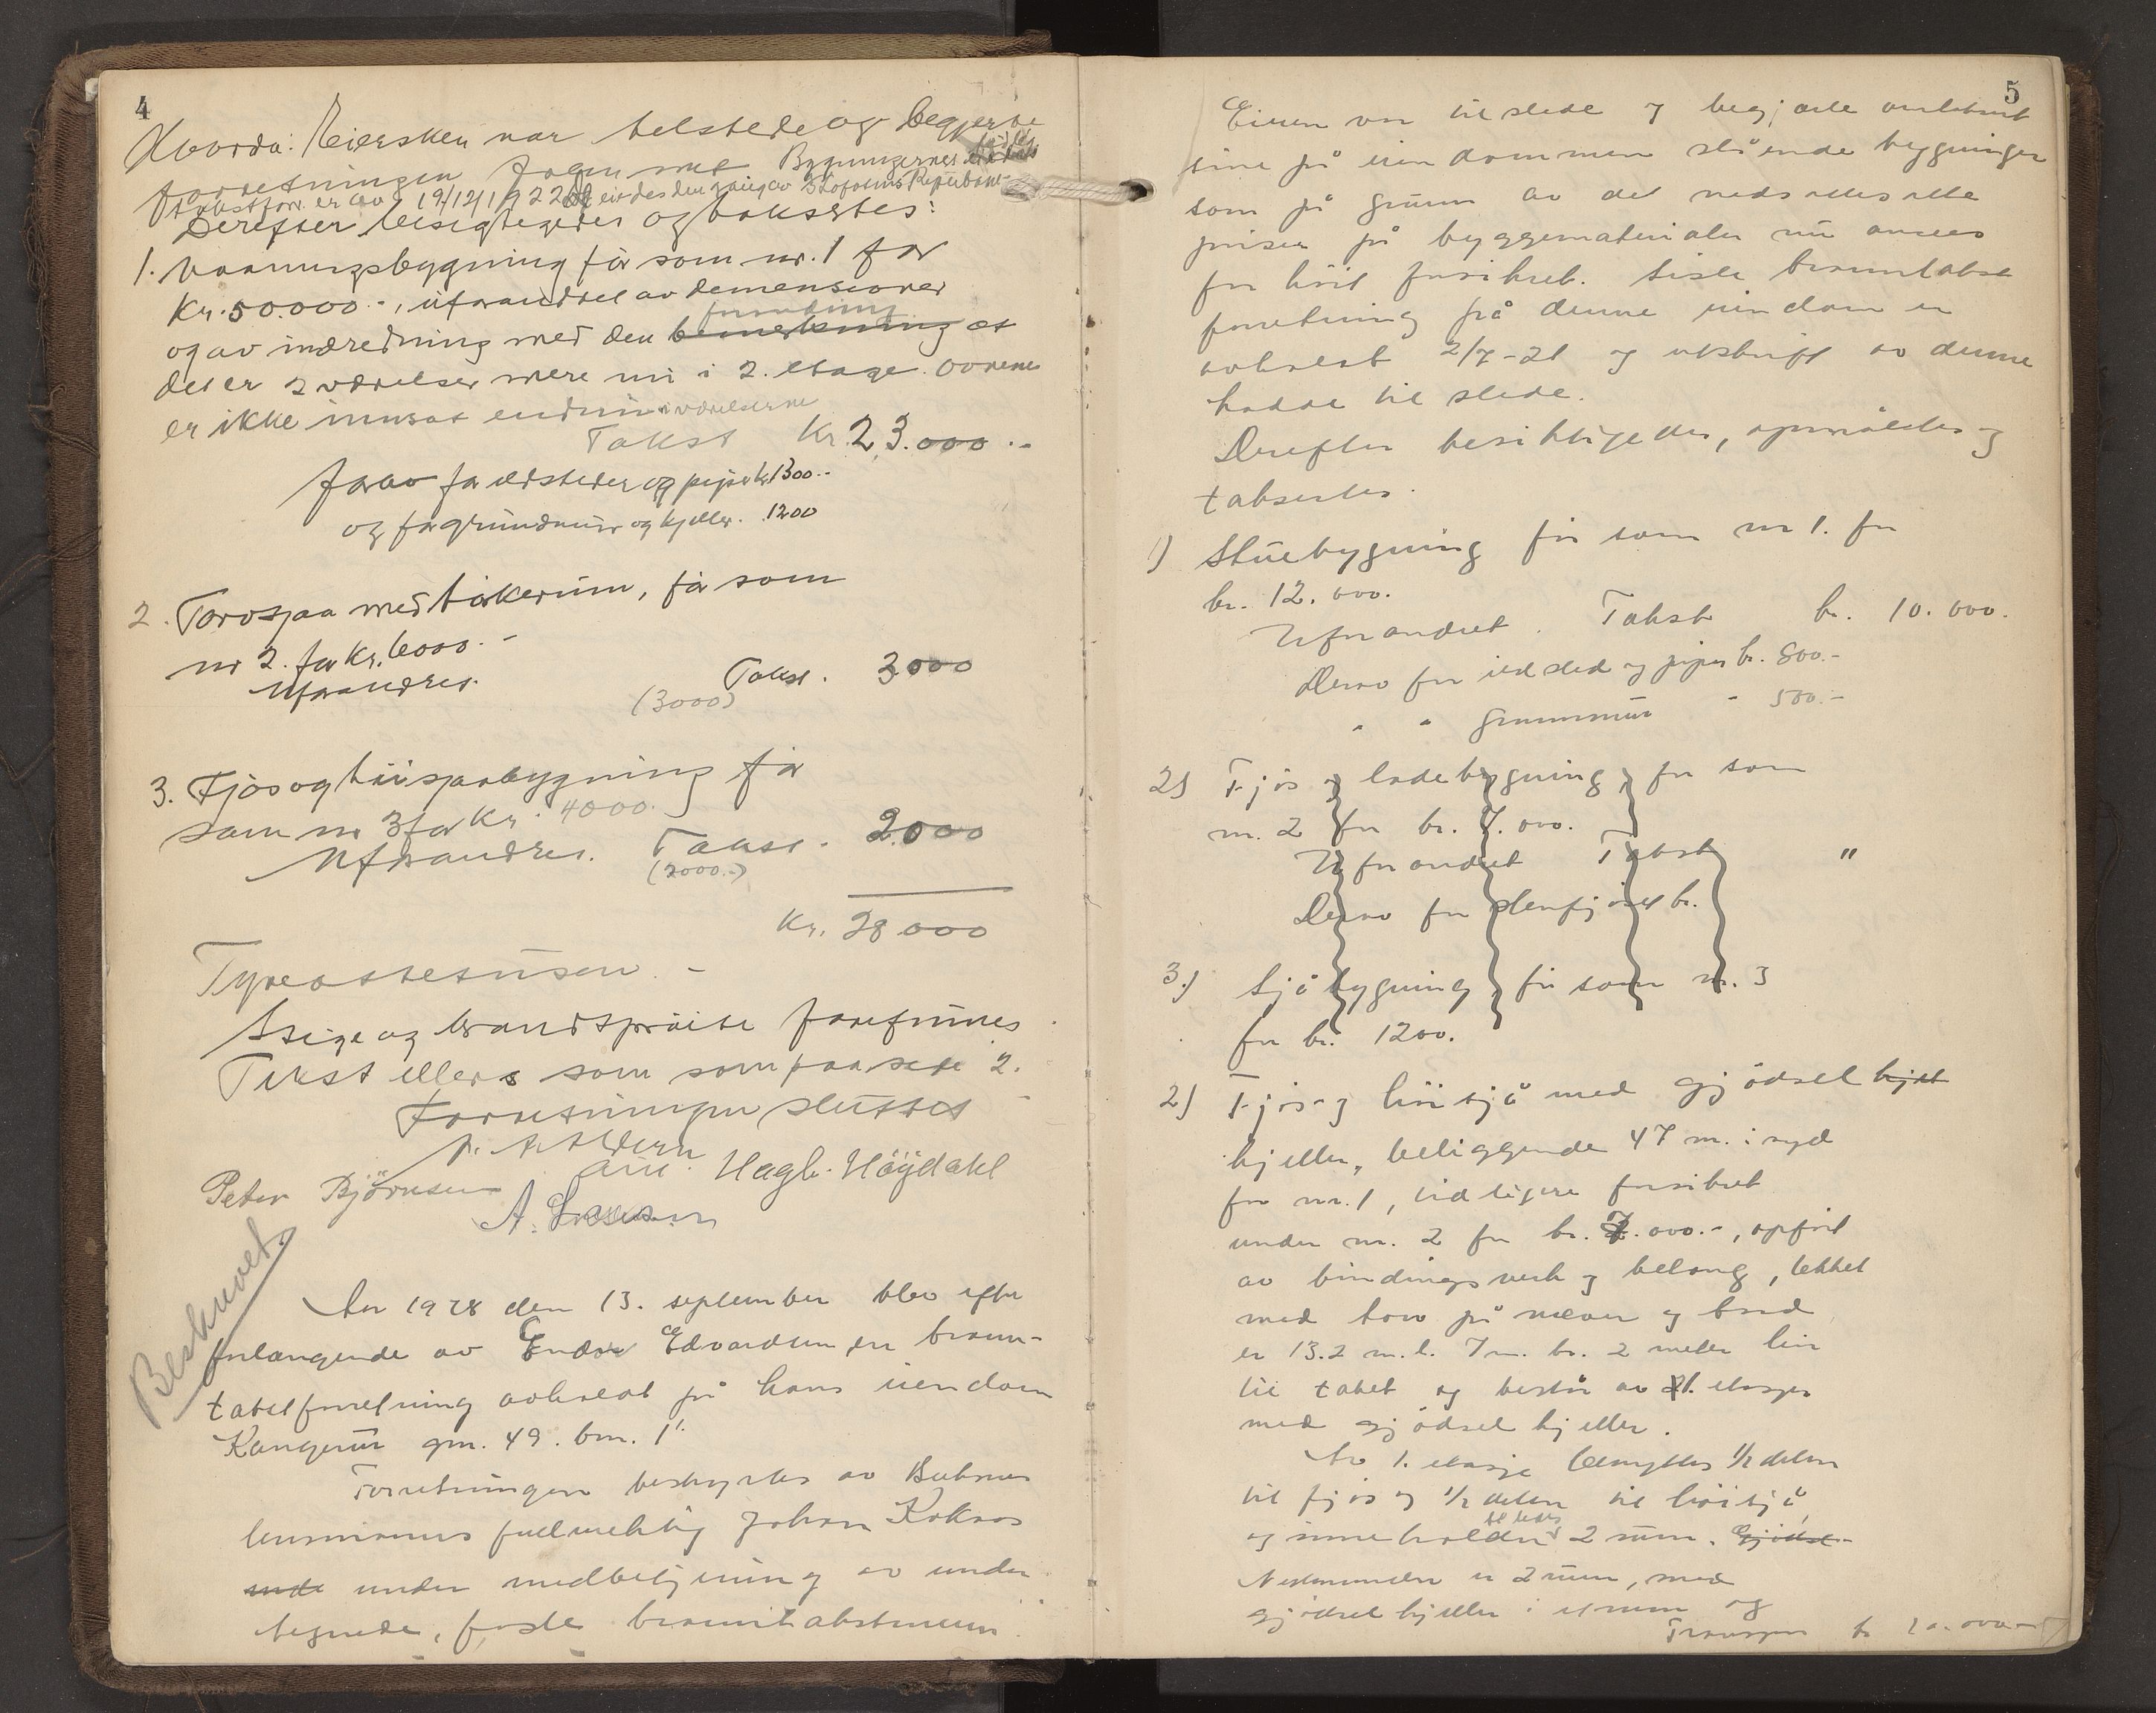 4
Hvorda: Eiersken var telstede og begjerte
forretningen Bygningernes
takstforr. er av 19/12 1922
Derefter besigtegedes og taksertes:
1. Vaaningsbygning før som nr. 1 for
Kr. 50.000.-, uforandret av demensioner
og av inredning med den bemerkning forandring at
det er 2 værelser mere nu i 2. etage. Ovnene
er ikke innsat endnu i værelserne
Takst Kr. 23.000.-
Herav for ildsteder og piper kr. 1300.-
og for grundmur og kjeller. 1200
2. Torvsjaa med bakerum, før som
nr 2. for Kr. 6000.-
Uforandret. Takst. 3000
(3000)
3. Fjøs og høisjaabygning før
som nr 3 for Kr. 4000.
Uforandret. Takst. 2000
(2000.-)
Kr. 28000
Stige og brandsprøite forefinnes
Tekst ellers som som paa side 2.
Forretningen sluttet
Peter Bjørnsen Hagb. Høydahl
A. Larsen
Beskrevet.
Aar 1928 den 13. september blev efter
forlangende av Endor Edvardsen en brann-
takstforretning avholdt på hans eiendom
Kangerur gnr. 49. bnr. 1.
Forretningen bestyrtes av Buksnes
lensmanns fullmektig Johan Kokaas
unde under medbetjening av under
tegnede, faste branntakstmenn.
5
Eieren var til stede og begjærte omtaksert
sine på eiendommen stående bygninger
som på grunn av det nedsattes alle
priser på byggematerialer nu ansees
for høit forsikret. Siste branntakst
forretning på denne eiendom er
avholdt 2/7-21 og utskrift av denne
hadde til stede.
Derefter besiktigedes, opmåltes og
taksertes.
1) Stuebygning før som nr 1. for
kr. 12.000.
Uforandret. Takst kr. 10.000.
Derav for ildsted og piper kr. 800.-
" " grunnmur - 500.-
2) Fjøs og ladebygning, før som
nr. 2 for kr. 7.000.
Uforandret Takst "
Derav for stenfjøset kr.
3.) Sjåbygning, før som nr. 3
for kr. 1200.
2) Fjøs og høisjå med gjødsel kjel
kjeller, beliggende 47 m. i syd
for nr. 1, tidligere forsikret
under nr. 2 for kr. 7.000.-, opført
av bindingsverk og betong, tekket
med torv på never og bord
er 13.2 m. l. 7 m. br. 2 meter høi
til taket og består av 1. etasje
med gjødselkjeller.
Av 1. etasje benyttes 1/2 delen
til fjøs og 1/2 delen til høisjå,
og inneholder således 2 rum. Gjødsel-
Nedenunder er 2 rum, med
gjødselkjeller i et rum og
Transport kr 10.000.-